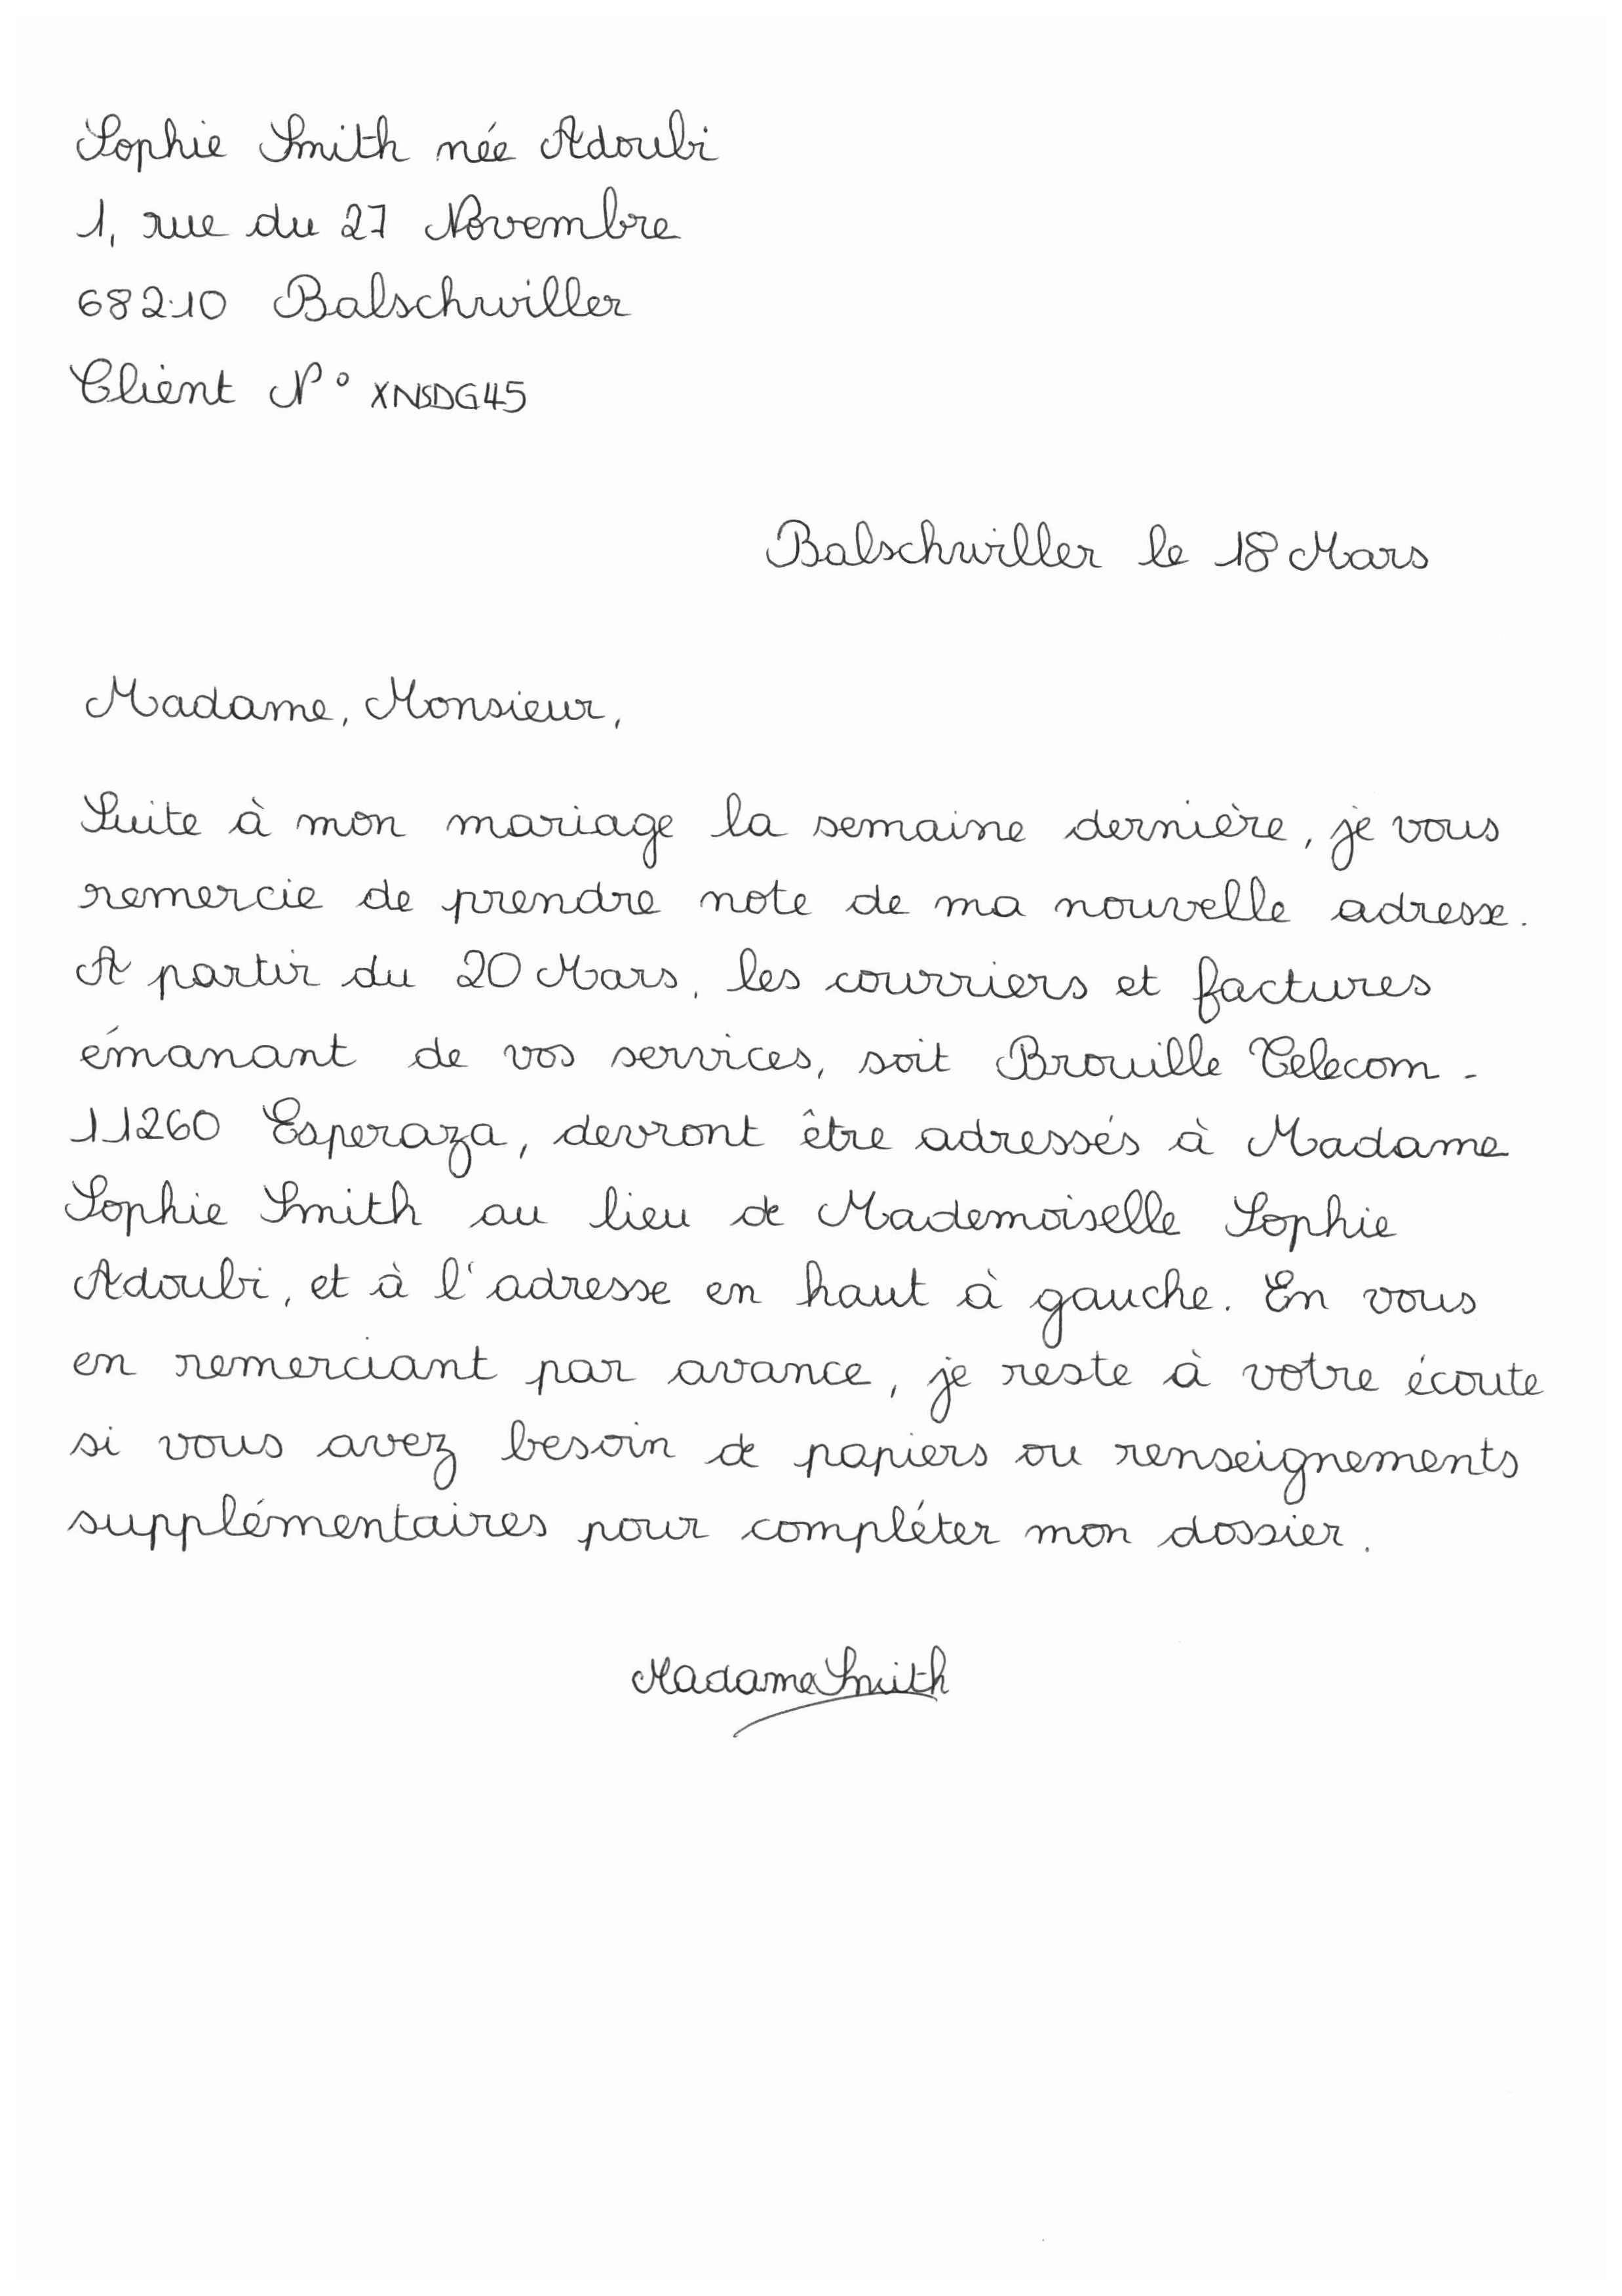 Sophie Smith née Adoubi
1, rue du 27 Novembre
68210 Balschwiller
Client N° XNSDG45
Balschwiller le 18 Mars
Madame, Monsieur,
Suite à mon mariage la semaine dernière, je vous
remercie de prendre note de ma nouvelle adresse.
A partir du 20 Mars, les courriers et factures
émanant de vos services, soit Brouille Telecom -
11260 Esperaza, devront être adressés à Madame
Sophie Smith au lieu de Mademoiselle Sophie
Adoubi, et à l'adresse en haut à gauche. En vous
en remerciant par avance, je reste à votre écoute
si vous avez besoin de papiers ou renseignements
supplémentaires pour compléter mon dossier.
Madame Smith